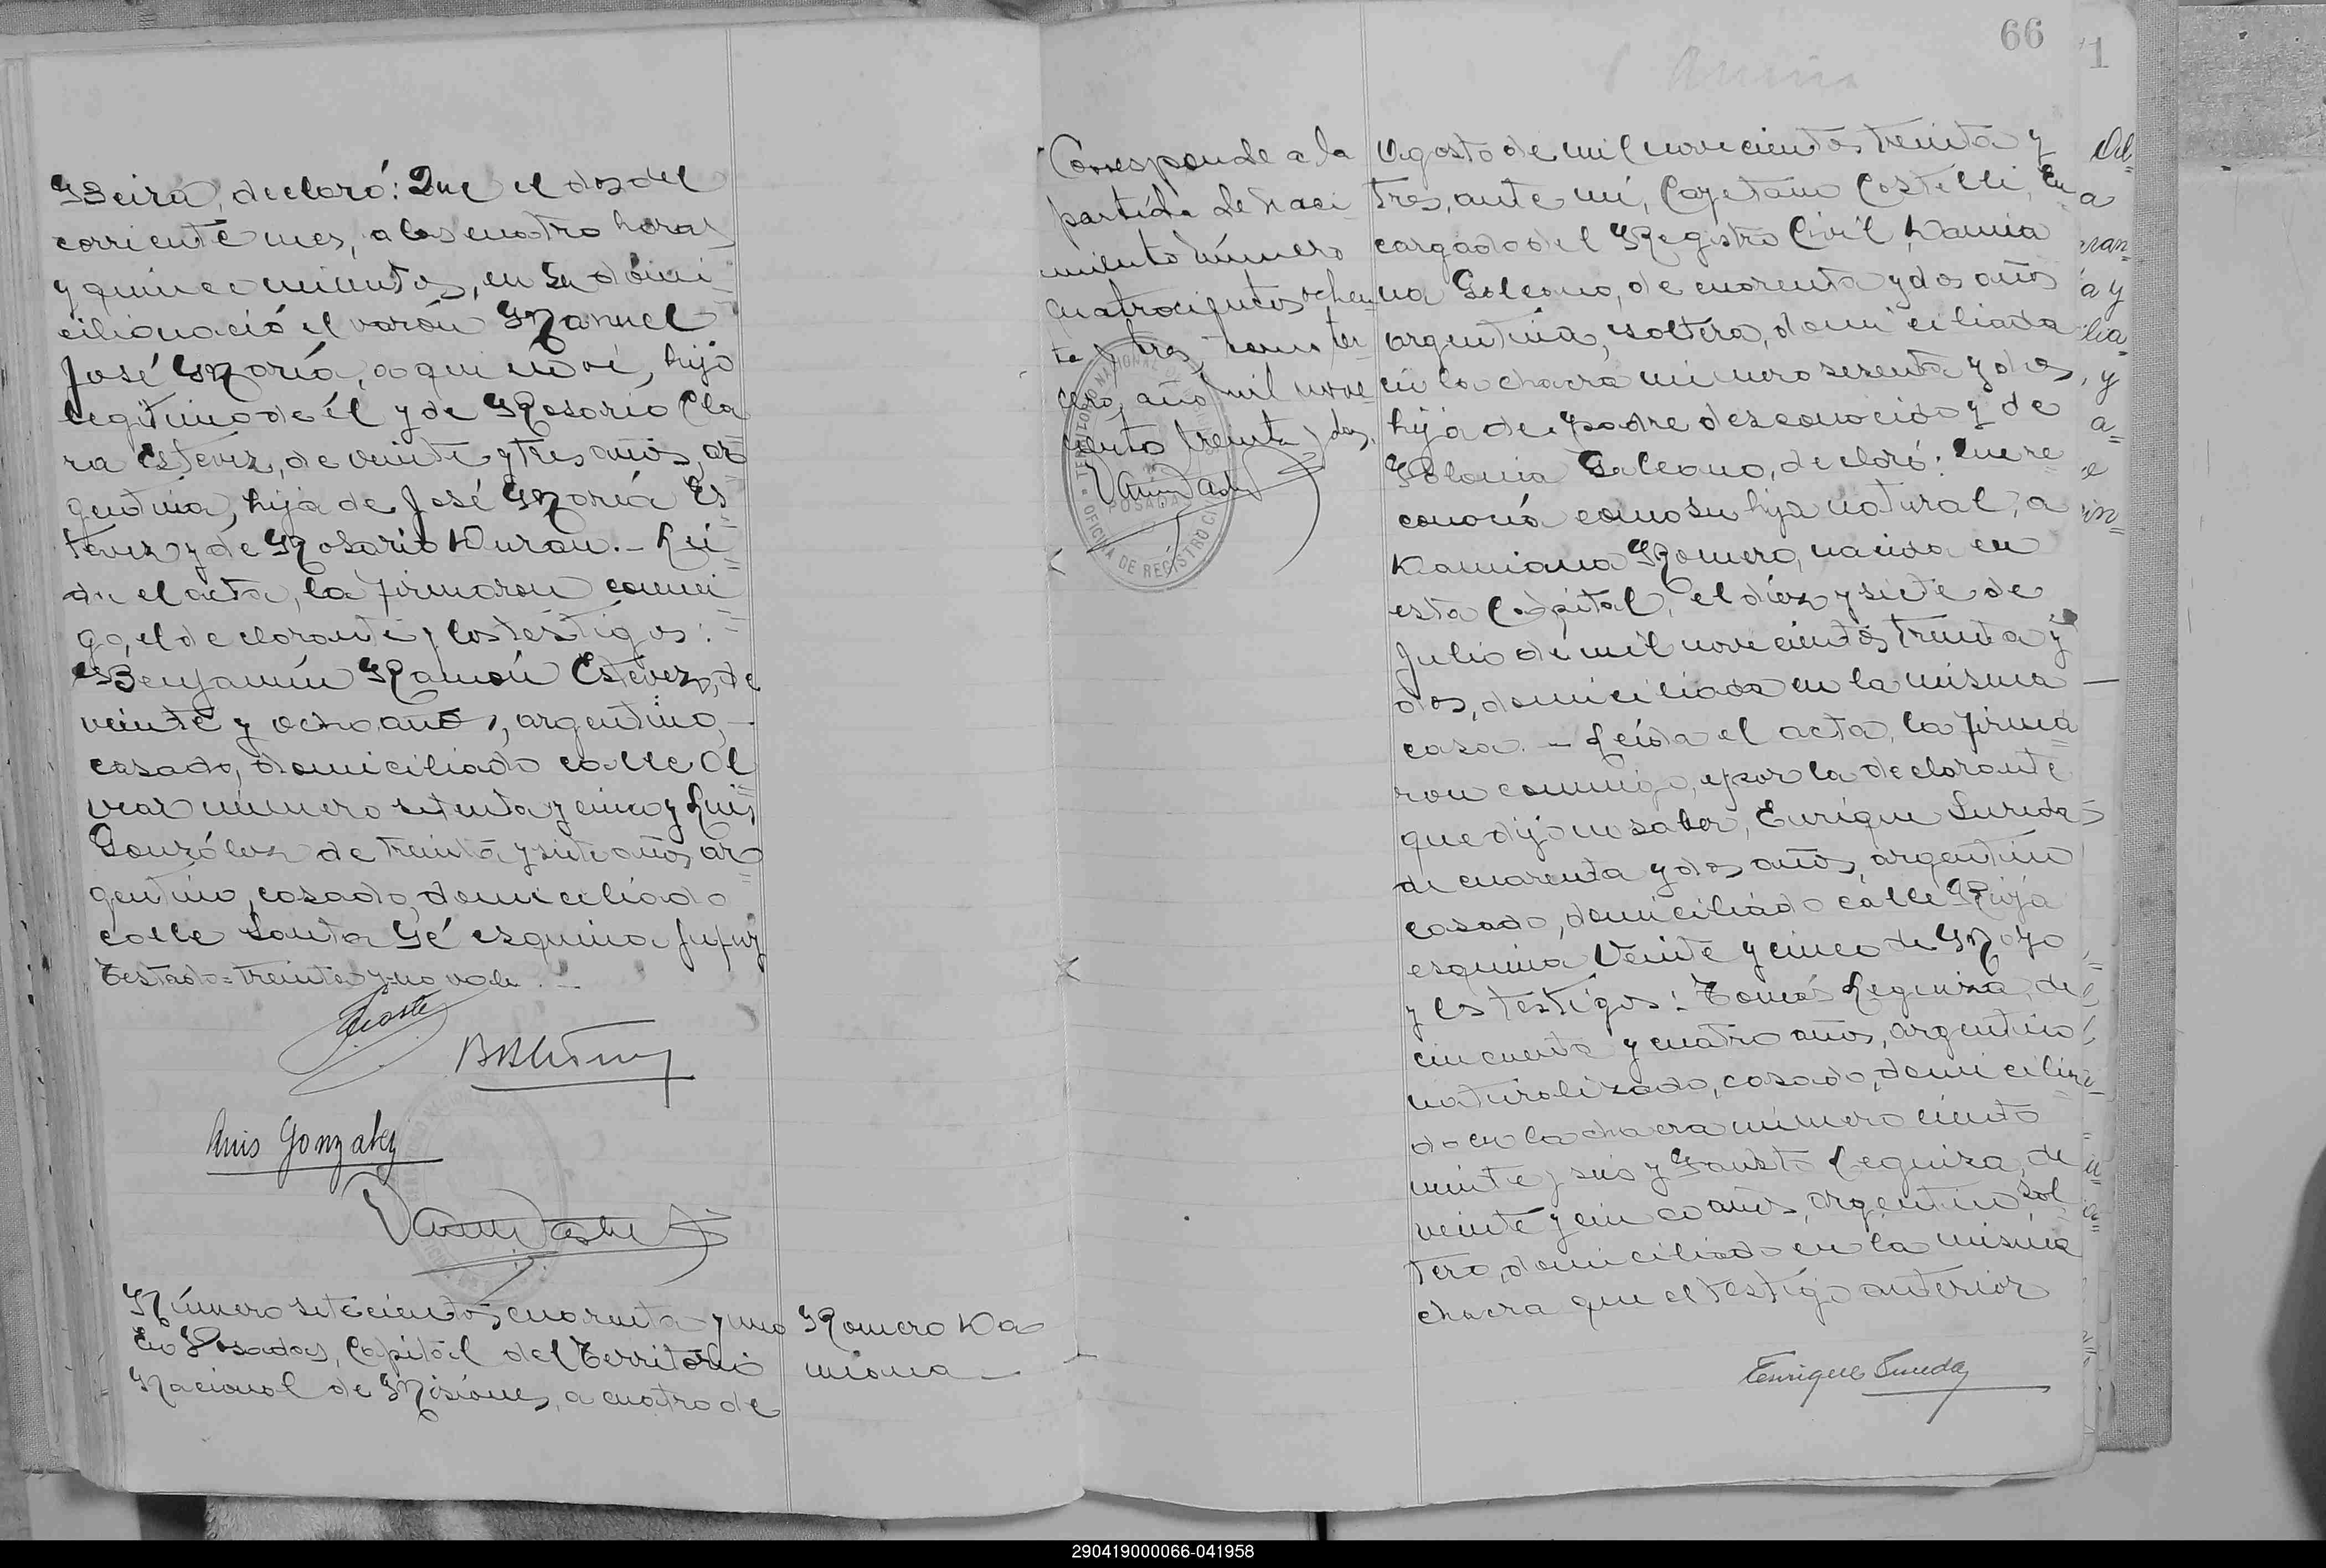 Beira, declaró: Que el dos del
corriente mes, a las cuatro horas
y quince minutos, en su domi
cilio nació el varón Manuel
José María, a quien ví, hijo
legítimo de él y de Rosario Cla
ra Estevez, de veinte y tres años, ar
gentina, hija de José María Es
tevez y de Rosario Duran.- Leí
da el acta, la firmaron conmi
go, el declarante y los testigos:
Benjamín Ramón Estévez, de
veinte y ocho años, argentino,
casado, domiciliado calle Ol
var número setenta y cinco y Luis
González de treinta y siete años, ar
gentino, casado, domiciliado
calle Santa Fé esquina Jujuy
Testado=treinta y=no vale.-
Luis Gonzalez
Número setecientos cuarenta y uno
En Posadas, Capital del Territorio
Nacional de Misiones, a cuatro de
Romero Da
miana
66
Corresponde a la
partida de naci
miento número
cuatrocientos ochen
ta y tres, tomo ter
cero, año mil nove
ciento treinta y dos.
TERRITORIO NACIONAL DE
POSADAS
OFICINA DE REGISTRO CIVIL
Agosto de mil novecientos treinta y
tres, ante mí, Cayetano Costelli, En
cargado del Registro Civil, Damia
na Galeano, de cuarenta y dos años
argentina, soltera, domiciliada
en la chacra número sesenta y dos,
hija de padre desconocido y de
Polonia Galeano, declaró: Que re
conocía como su hija natural, a
Damiana Romero, nacida en
esta Capital, el diez y siete de
Julio de mil novecientos treinta y
dos, domiciliada en la misma
casa.- Leída el acta, la firma
ron conmigo, y por la declarante
que dijo no saber, Enrique Sureda
de cuarenta y dos años, argentino
casado, domiciliado calle Rioja
esquina Veinte y cinco de Mayo
y los testigos: Tomás Leguiza, de
cincuenta y cuatro años, argentino
naturalizado, casado, domicilia
do en la chacra número ciento
veinte y seis y Fausto Leguiza, de
veinte y cinco años, argentino sol
tero, domiciliado en la misma
chacra que el testigo anterior
Enrique Sureda
290419000066-041958